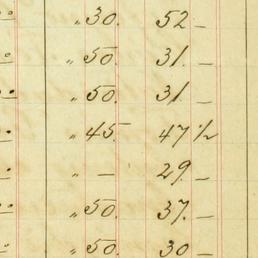 „ 30. 52 –
„ 50. 31. –
„ 50. 31. –
„ 45. 47 ½
„ – 29. –
„ 50. 37. –
„ 50. 30 –